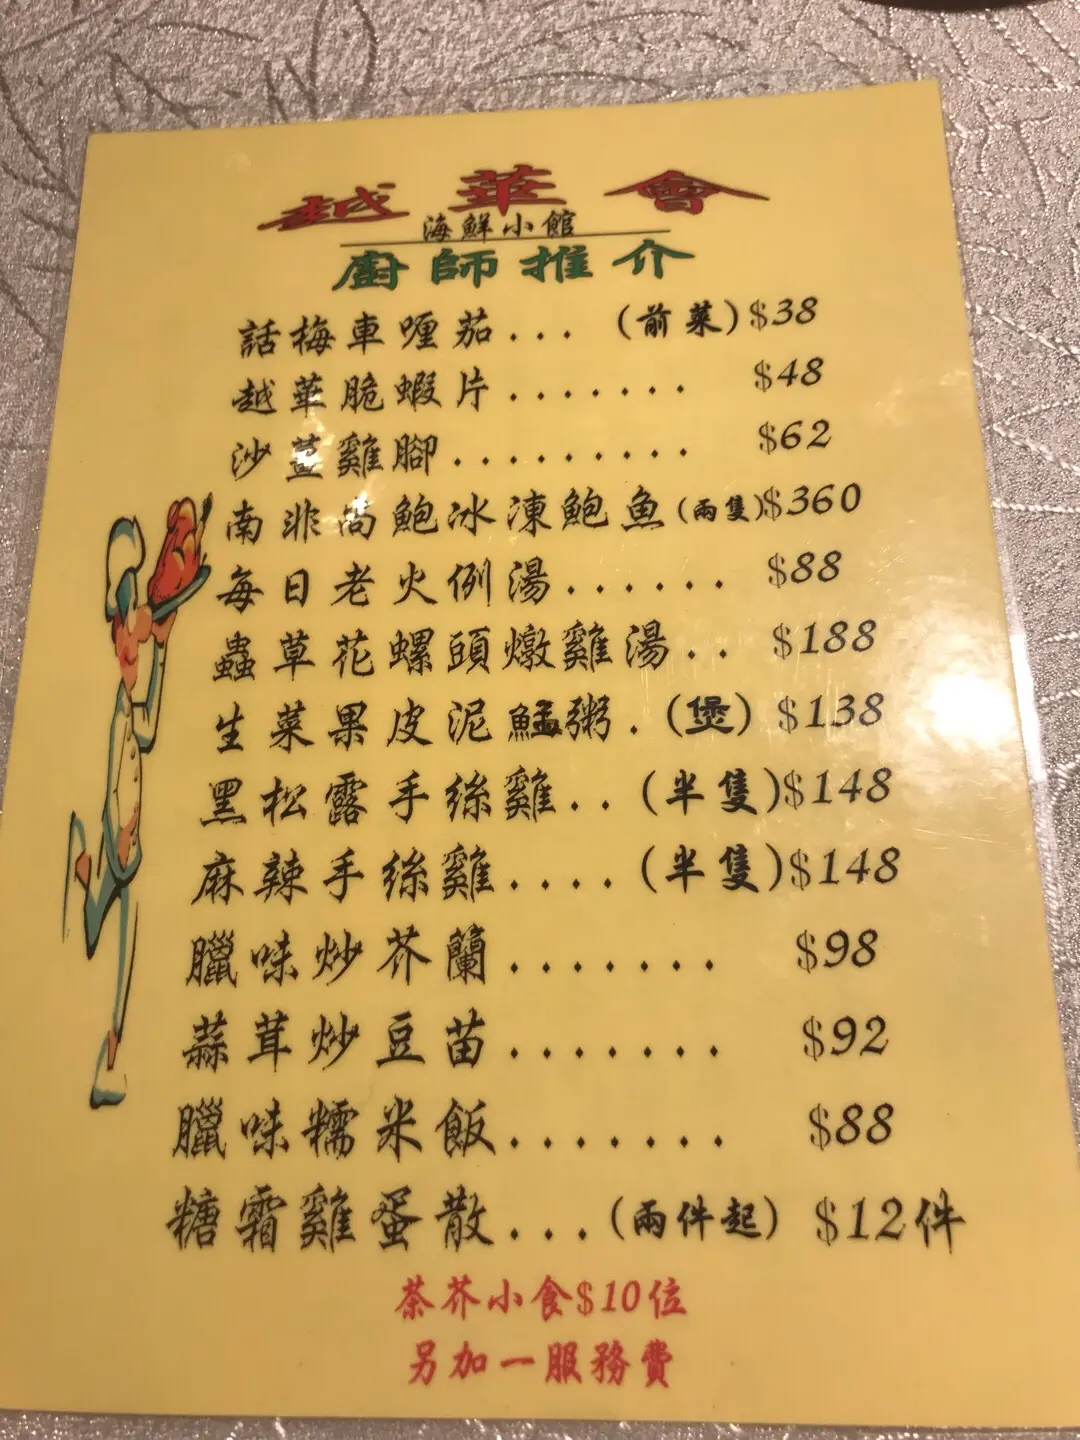 越華會
海鮮小館
廚師推介
話梅車喱茄... (前菜)$38
越華脆蝦片....... $48
沙薑雞腳......... $62
南非尚鮑冰凍鮑魚(兩隻)$360
每日老火例湯...... $88
蟲草花螺頭燉雞湯.. $188
生菜果皮泥鯭粥.(煲) $138
黑松露手絲雞..(半隻)$148
麻辣手絲雞....(半隻)$148
臘味炒芥蘭....... $98
蒜茸炒豆苗....... $92
臘味糯米飯....... $88
糖霜雞蛋散...(兩件起) $12件
茶芥小食$10位
另加一服務費